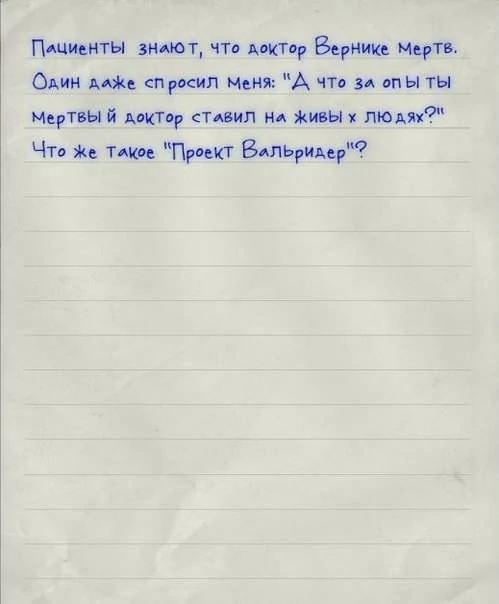 Пациенты знают, что доктор Вернике мертв.
Один даже спросил меня: "А что за опыты
мертвый доктор ставил на живых людях?"
Что же такое "Проект Вальридер"?